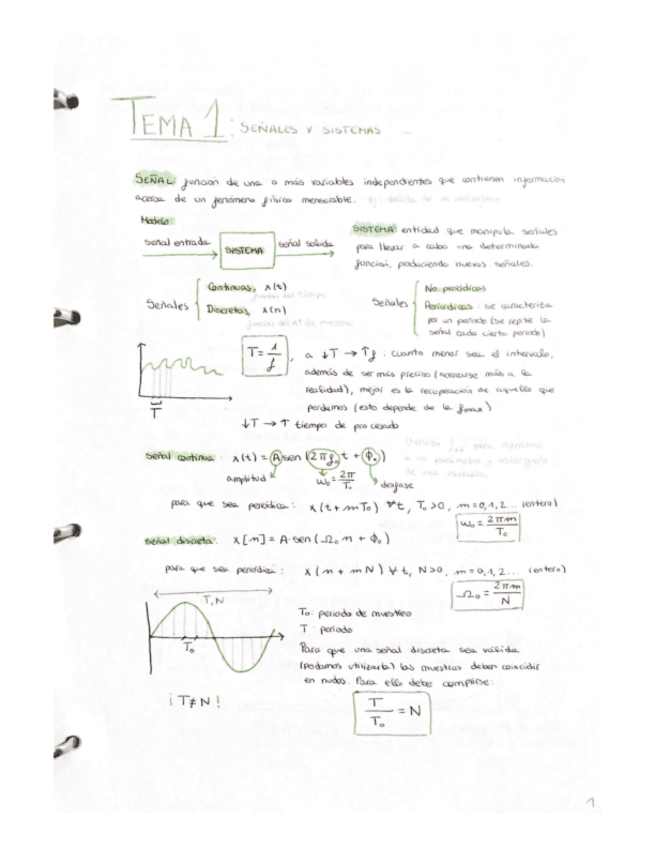 TEMA 1: SEÑALES Y SISTEMAS
SEÑAL: función de una o más variables independientes que contienen información
acerca de un fenómeno físico mensurable.
Modelo:
señal entrada
SISTEMA
señal salida
SISTEMA: entidad que manipula señales
para llevar a cabo una determinada
función, produciendo nuevas señales.
Señales
Continuas, x(t)
Discretas, x(n)
Señales
No periódicas
Periódicas: se caracteriza
por un periodo (se repite la
señal cada cierto periodo)
T
T = 1/f , a ↓T → ↑f : cuanto menor sea el intervalo,
además de ser más preciso (acercarse más a la
realidad), mejor es la recuperación de aquello que
perdemos (esto depende de la fmax)
↓T → ↑ tiempo de procesado
Señal continua: x(t) = A sen (2πf₀t + ϕ₀)
amplitud
ω₀ = 2π/T₀
desfase
para que sea periódica: x(t + mT₀) ∀t, T₀>0, m=0,1,2... (entero)
ω₀ = 2πm/T₀
señal discreta: x[n] = A·sen(Ω₀ n + ϕ₀)
para que sea periódica: x(n + mN) ∀ t, N>0, m=0,1,2... (entero)
Ω₀ = 2πm/N
T,N
T₀
T₀: periodo de muestreo
T : periodo
Para que una señal discreta sea válida
(podamos utilizarla) las muestras deben coincidir
en nudos. Para ello debe cumplirse:
¡ T≠N !
T/T₀ = N
1